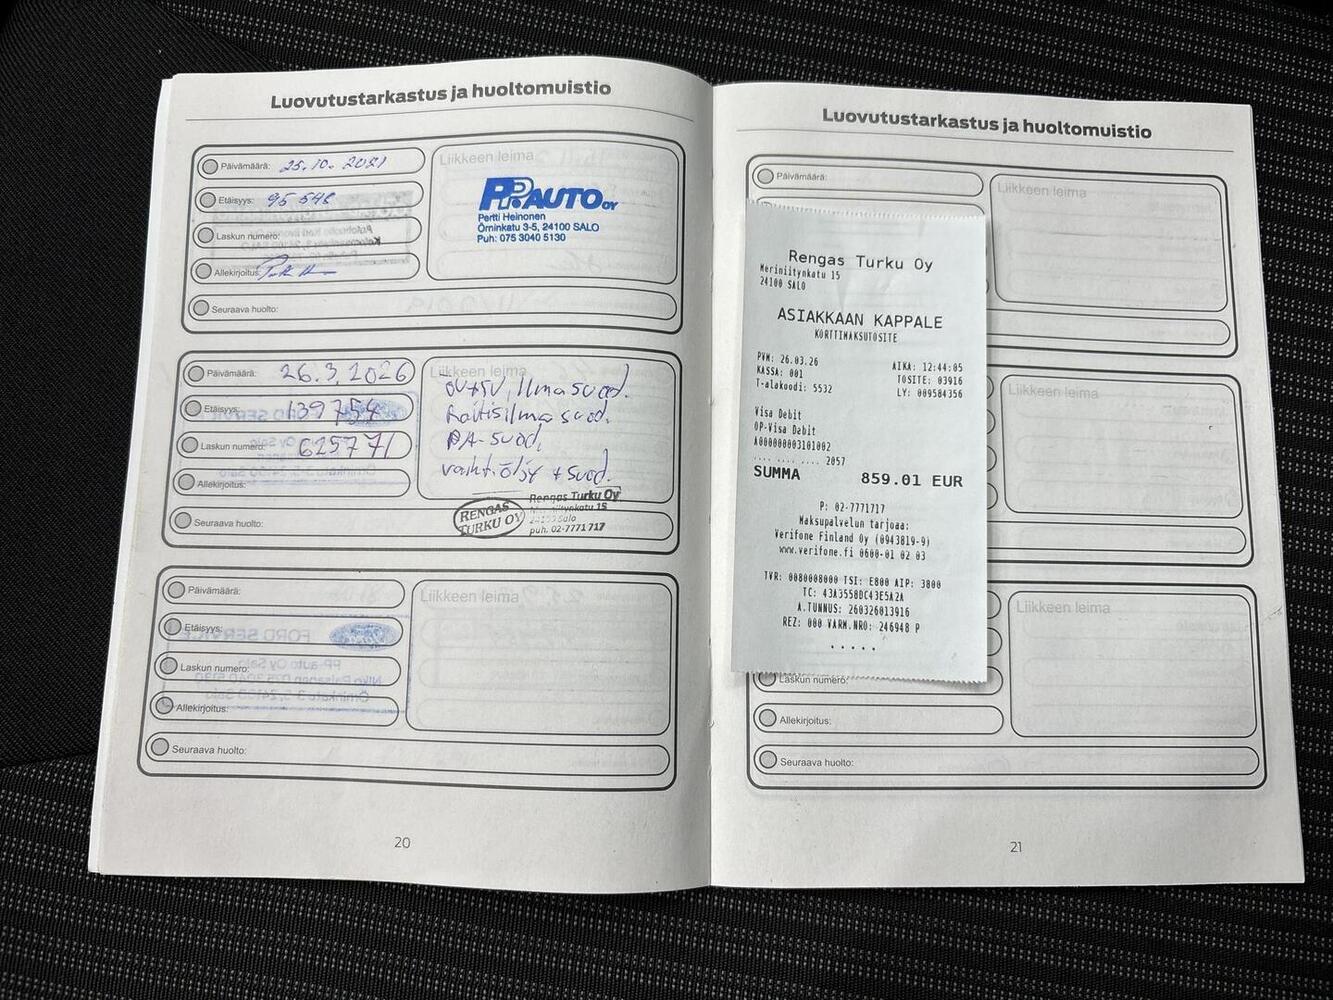 Luovutustarkastus ja huoltomuistio
Päivämäärä: 25.10.2021
Etäisyys: 95 548
Laskun numero:
Allekirjoitus:
Seuraava huolto:
Liikkeen leima
PP.AUTO OY
Pertti Heinonen
Örninkatu 3-5, 24100 SALO
Puh: 075 3040 5130
Päivämäärä: 26.3.2026
Etäisyys: 139754
Laskun numero: 625771
Allekirjoitus:
Seuraava huolto:
Liikkeen leima
öv+sv, Ilmasuod.
Raitisilmasuod.
PA-suod.
vaiht.öljy + suod.
RENGAS
TURKU OY
Rengas Turku Oy
Meriniitynkatu 15
Salo
puh. 02-7771 717
Päivämäärä:
Etäisyys:
Laskun numero:
Allekirjoitus:
Seuraava huolto:
Liikkeen leima
20
Luovutustarkastus ja huoltomuistio
Päivämäärä:
Liikkeen leima
Liikkeen leima
Liikkeen leima
Laskun numero:
Allekirjoitus:
Seuraava huolto:
21
Rengas Turku Oy
Meriniitynkatu 15
24100 SALO
ASIAKKAAN KAPPALE
KORTTIMAKSUTOSITE
PVM: 26.03.26 AIKA: 12:44:05
KASSA: 001 TOSITE: 03916
T-alakoodi: 5532 LY: 009584356
Visa Debit
OP-Visa Debit
A000000003101002
.... .... .... 2057
SUMMA 859.01 EUR
P: 02-7771717
Maksupalvelun tarjoaa:
Verifone Finland Oy (0943819-9)
www.verifone.fi 0600-01 02 03
TVR: 0080008000 TSI: E800 AIP: 3800
TC: 43A3558DC43E5A2A
A.TUNNUS: 260326013916
REZ: 000 VARM.NRO: 246948 P
.....